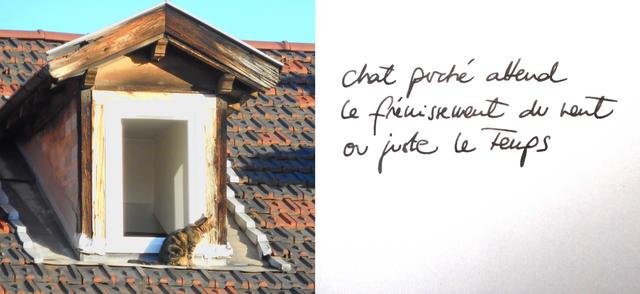 chat perché attend
le frémissement du vent
ou juste le Temps